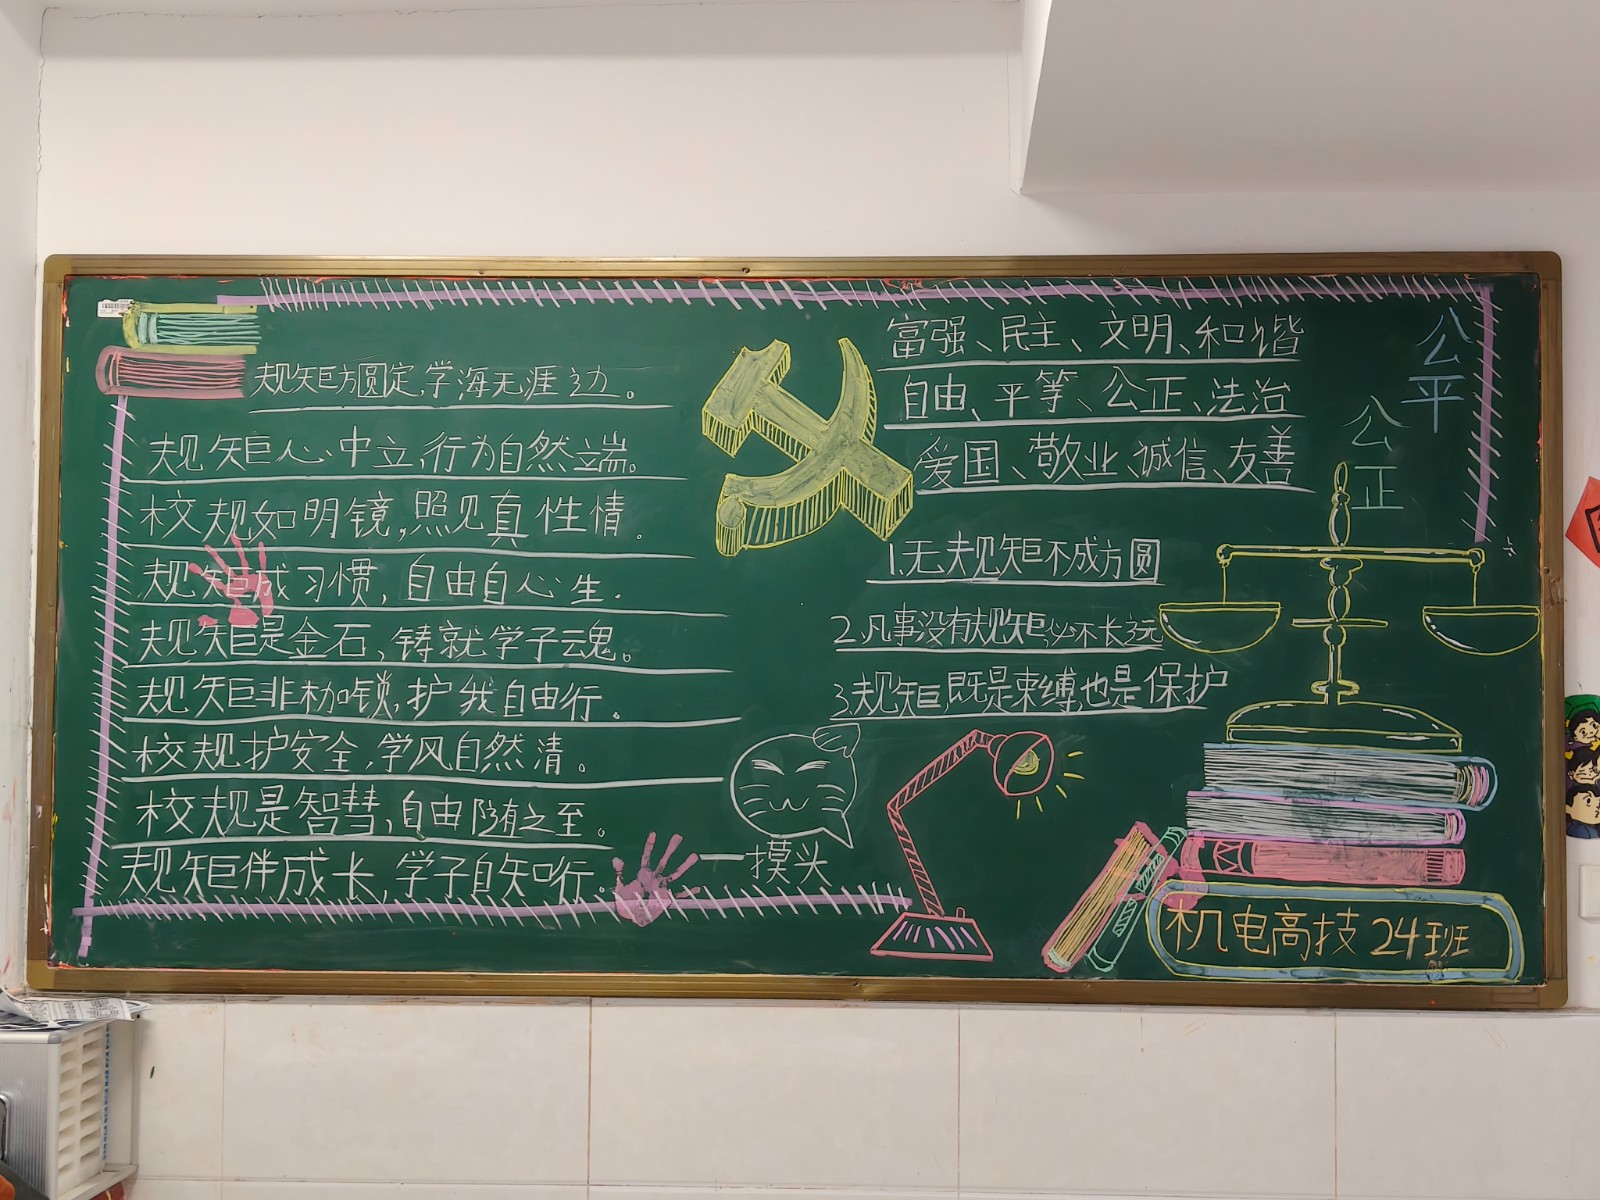 规矩方圆定,学海无涯边。
规矩人心中立,行为自然端。
校规如明镜,照见真性情.
规矩成习惯,自由自心生.
规矩是金石,铸就学子云魂。
规矩非枷锁,护我自由行。
校规护安全,学风自然清。
校规是智慧,自由随之至。
规矩伴成长,学子自知行.
一摸头
富强、民主、文明、和谐
自由、平等、公正、法治
爱国、敬业、诚信、友善
1.无规矩不成方圆
2.凡事没有规矩,必不长远
3.规矩,既是束缚,也是保护
公平
公正
机电高技24班